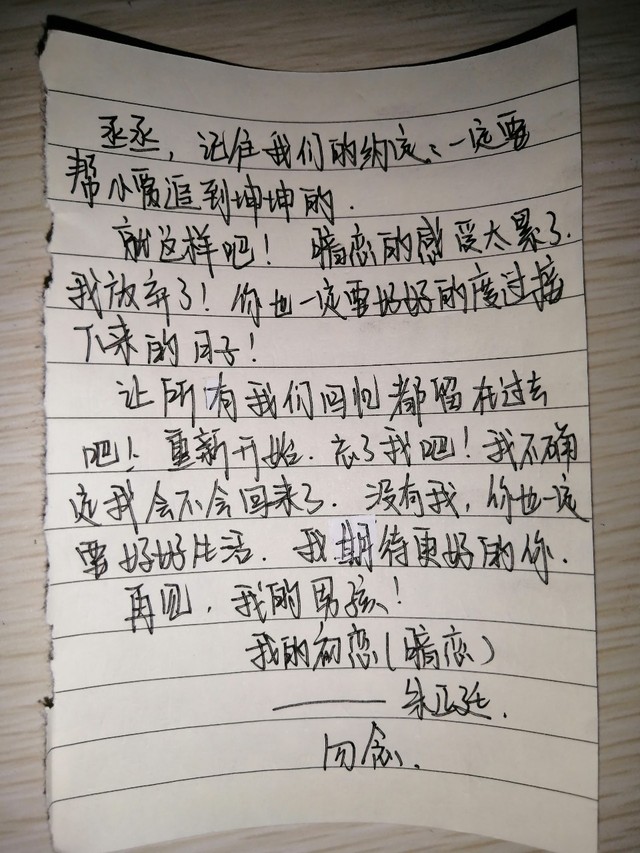 丞丞，记住我们的约定：一定要
帮小贾追到坤坤的.
就这样吧！暗恋的感受太累了.
我放弃了！你也一定要好好的度过接
下来的日子！
让所有我们回忆都留在过去
吧！重新开始.忘了我吧！我不确
定我会不会回来了.没有我，你也一定
要好好生活.我期待更好的你.
再见，我的男孩！
我的初恋（暗恋）
——朱正廷.
勿念.